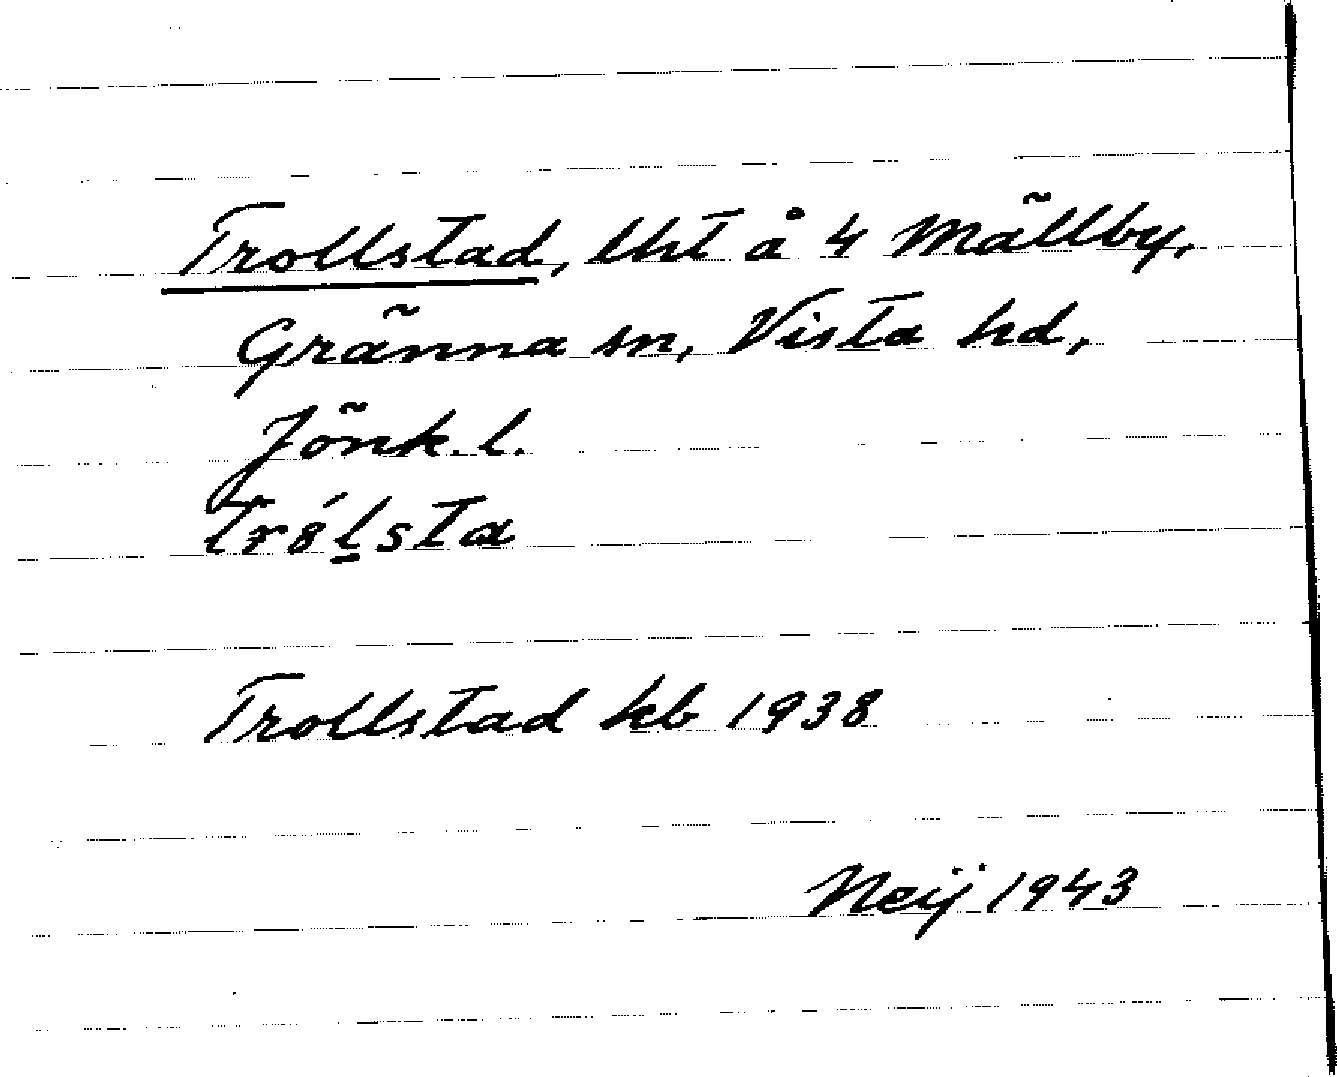 Trollstad, lht å 4 Mällby,
Gränna sn, Vista hd,
Jönk. l.
tró̀l̠sta
Trollstad kb 1938
Neij 1943